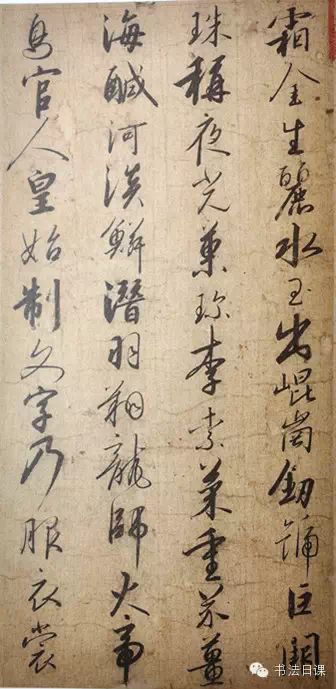 霜金生麗水玉出崐崗劒號巨闕
珠稱夜光菓珍李柰菜重芥薑
海醎河淡鱗潛羽翔龍師火帝
鳥官人皇始制文字乃服衣裳
书法日课